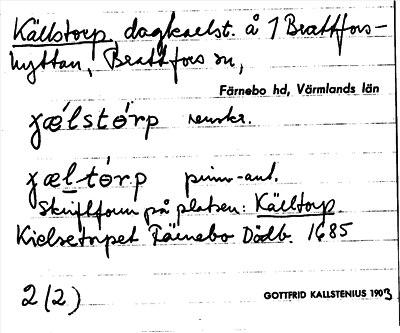 Källstorp, dagkarlst. å 1 Brattfors-
hyttan, Brattfors sn,
Färnebo hd, Värmlands län
χǽlstórp renskr.
χæl-tórp prim-ant.
Skriftform på platsen: Källtorp
Kielsetorpet Färnebo Dödb. 1685
2(2)
GOTTFRID KALLSTENIUS 1903